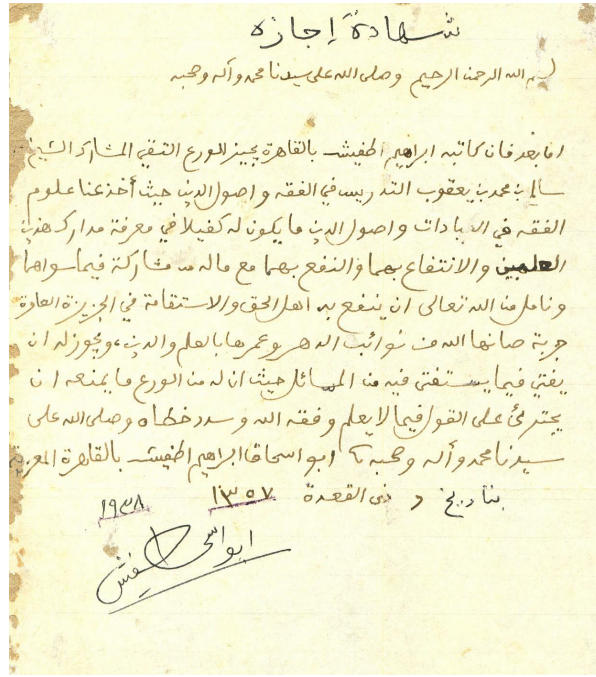 شهادة إجازه
بسم الله الرحمن الرحيم وصلى الله على سيدنا محمد وآله وصحبه
اما بعد فان كاتبه ابراهيم اطفيش بالقاهرة يجيز الورع التقي المشارك الشيخ
سالم بن محمد بن يعقوب التدريس في الفقه و اصول الدين حيث أخذ عنا علوم
الفقه في العبادات واصول الدين ما يكون له كفيلا في معرفة مدارك هذين
العلمين والانتفاع بهما والنفع بهما مع ماله من مشاركة فيما سواهما
ونامل من الله تعالى ان ينفع به اهل الحق والاستقامة في الجزيرة العامرة
جربة صانها الله من نوائب الدهر وعمرها بالعلم والدين، ويجوز له ان
يفتي فيما يستفتى فيه من المسائل حيث ان له من الورع ما يمنعه ان
يجترئ على القول فيما لا يعلم وفقه الله وسدد خطاه وصلى الله على
سيدنا محمد وآله وصحبه ابو اسحاق ابراهيم اطفيش بالقاهرة المعزية
بتاريخ ذى القعدة ١٣٥٧ ١٩٣٨
ابو اسحاق اطفيش